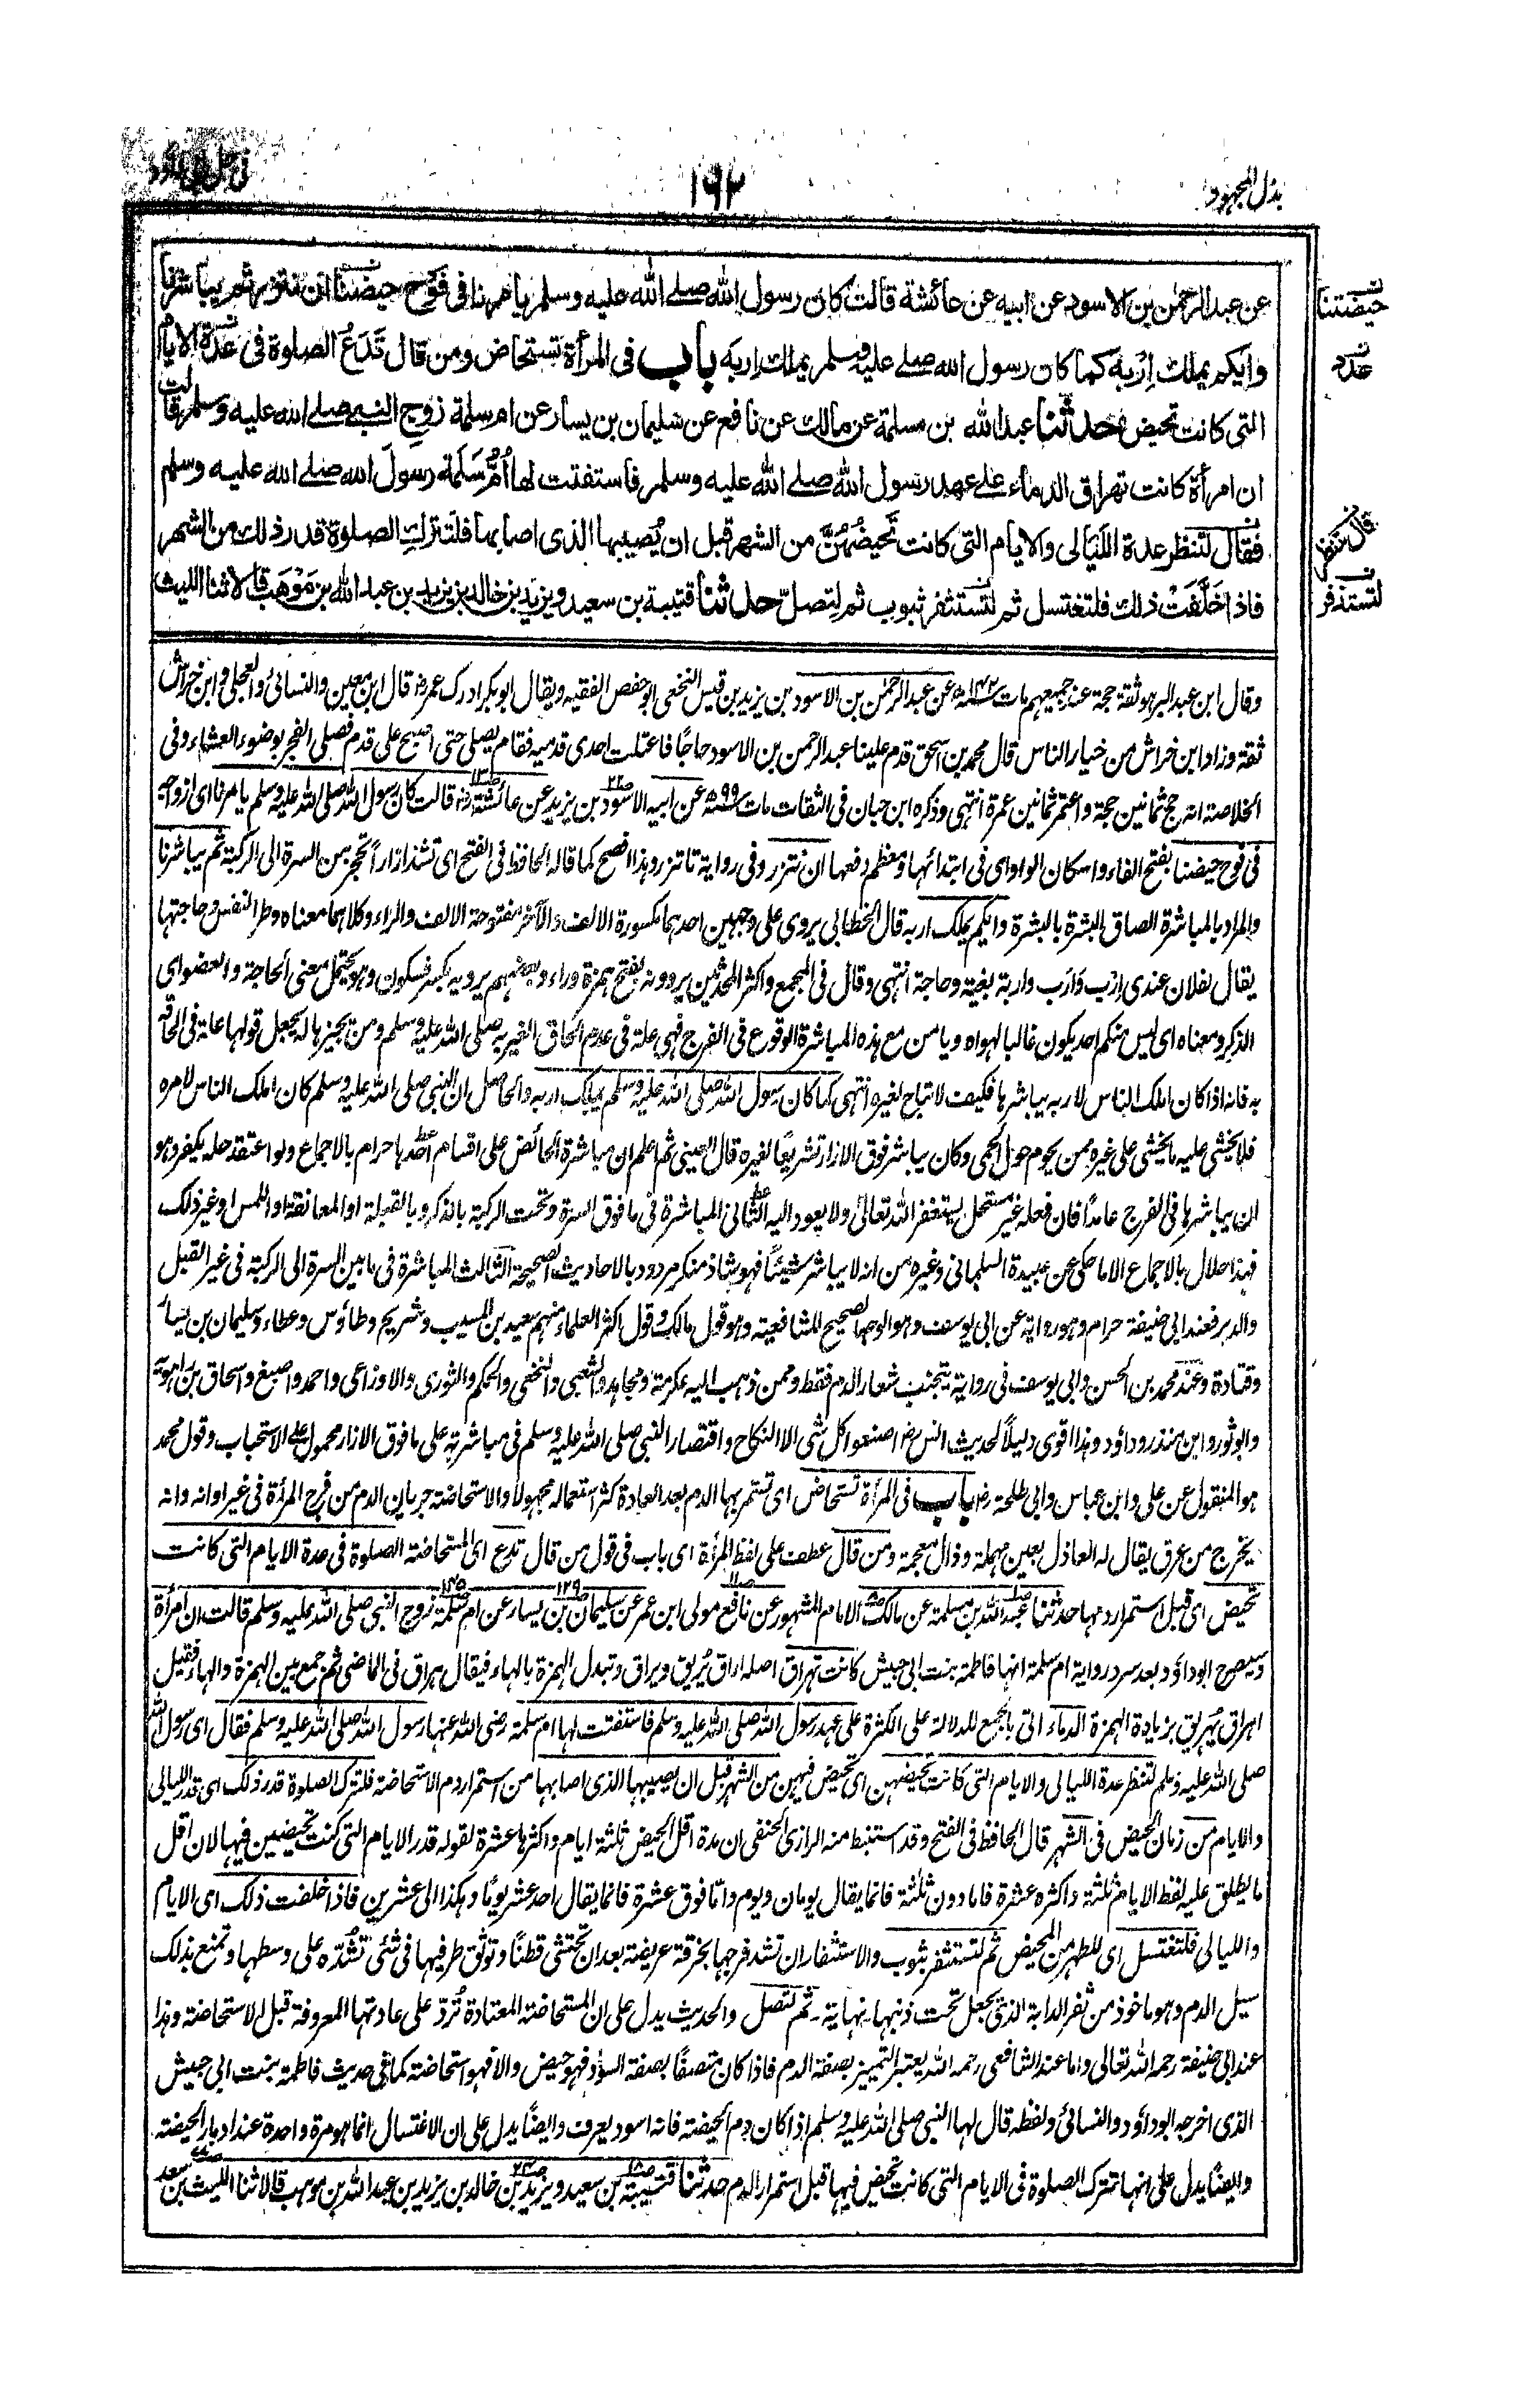 بذل المجهود
١٦٢
عن عبد الرحمٰن بن الاسود عن ابيه عن عائشة قالت كان رسول الله صلے الله عليه وسلم يامرنا في فوح حيضنا ان نتزر ثم يباشرنا
وايكم يملك اِرْبَه كما كان رسول الله صلے عليه وسلم يملك اربه باب في المرأة تستحاض ومن قال تَدَعُ الصلوة في عدة الايام
التي كانت تحيض حدثنا عبد الله بن مسلمة عن مالك عن نافع عن سليمان بن يسار عن ام سلمة زوج النبي صلے الله عليه وسلم قالت
ان امرأة كانت تهراق الدماء علے عهد رسول الله صلے الله عليه وسلم فاستفتت لها اُمُّ سَلَمة رسولَ الله صلے الله عليه وسلم
فقال لتنظر عدة اللَّيَالي والايام التي كانت تَحِيضُهُنَّ من الشهر قبل ان يُصيبها الذى اصابها فلتترك الصلوة قدر ذلك من الشهر
فاذا خَلَّفَتْ ذلك فلتغتسل ثم لتستثفر بثوب ثم لِتصلّ حدثنا قتيبة بن سعيد ويزيد بن خالد بن يزيد بن عبد الله بن مَوْهَب قالا ثنا الليث
حيضتنا
عدد
قال لتنظر
لتستذفر
وقال ابن عبد البر هو ثقة حجة عند جميعهم مات عن عبد الرحمٰن بن الاسود بن يزيد بن قيس النخعي ابو حفص الفقيه ويقال ابو بكر ادرك عمر قال ابن معين والنسائي والعجلي وابن خراش
ثقة وزاد ابن خراش من خيار الناس قال محمد بن اسحق قدم علينا عبد الرحمن بن الاسود حاجًا فاعتلت احدى قدميه فقام يصلي حتى اصبح على قدم فصلى الفجر بوضوء العشاء وفي
الخلاصة انه حج ثمانين حجة واعتمر ثمانين عمرة انتهى وذكره ابن حبان في الثقات مات سنة ٩٩ عن ابيه الاسود بن يزيد عن عائشة قالت كان رسول الله صلى الله عليه وسلم يامرنا اى ازواجه
في فوح حيضنا بفتح الفاء واسكان الواو اى في ابتدائها ومعظم دفعها ان نتزر وفي رواية تاتزر وهذا افصح كما قاله الحافظ في الفتح اى تشد ازاراً تحجر بين السرة الى الركبة ثم يباشرنا
والمراد بالمباشرة الصاق البشرة بالبشرة وايكم يملك اربه قال الخطابي يروى على وجهين احدهما مكسورة الالف والآخر مفتوحة الالف والراء وكلاهما معناه وطر النفس وحاجتها
يقال لفلان عندى اِرْب وَارَب واربة بغية وحاجة انتهى وقال في المجمع واكثر المحدثين يروونه بفتح همزة وراء وبعضهم يرويه بكسر فسكون وهو يحتمل معنى الحاجة والعضو اى
الذكر ومعناه اى ليس منكم احد يكون غالبا لهواه ويامن مع هذه المباشرة الوقوع في الفرج فهي علة في عدم الحاق الغير به صلى الله عليه وسلم ومن يجيزها له يجعل قولها علة في الحاقه
به فانه اذا كان املك الناس لاربه يباشرها فكيف لا تباح لغيره انتهى كما كان رسول الله صلى الله عليه وسلم يملك اربه والحاصل ان النبي صلى الله عليه وسلم كان املك الناس لامره
فلا يخشى عليه ما يخشى على غيره ممن يحوم حول الحمى وكان يباشر فوق الازار تشريعًا لغيره قال العيني ثم اعلم ان مباشرة الحائض على اقسام احدها حرام بالاجماع ولو اعتقد حله يكفر وهو
ان يباشرها في الفرج عامداً فان فعله غير مستحل يستغفر الله تعالى ولا يعود اليه الثاني المباشرة في ما فوق السرة وتحت الركبة بالذكر وبالقبلة او المعانقة او اللمس او غير ذلك
فهذا حلال بالاجماع الا ما حكى عن عبيدة السلماني وغيره من انه لا يباشر شيئًا فهو شاذ منكر مردود بالاحاديث الصحيحة الثالث المباشرة في ما بين السرة الى الركبة في غير القبل
والدبر فعند ابي حنيفة حرام وهو رواية عن ابي يوسف وهو الوجه الصحيح للشافعية وهو قول مالك وقول اكثر العلماء منهم سعيد بن المسيب وشريح وطاؤس وعطاء وسليمان بن يسار
وقتادة وعند محمد بن الحسن وابي يوسف في رواية يتجنب شعار الدم فقط وممن ذهب اليه عكرمة ومجاهد والشعبي والنخعي والحكم والثورى والاوزاعي واحمد واصبغ واسحاق بن راهويه
وابو ثور وابن منذر وداؤد وهذا اقوى دليلًا لحديث انس رض اصنعوا كل شئ الا النكاح واقتصار النبي صلى الله عليه وسلم في مباشرته على ما فوق الازار محمول على الاستحباب وقول محمد
هو المنقول عن علي وابن عباس وابي طلحة رض باب في المرأة تستحاض اى تستمر بها الدم بعد العادة كثر استعماله مجهولًا والاستحاضة جريان الدم من فرج المرأة في غير اوانه وانه
يخرج من عرق يقال له العاذل بعين مهملة وذال معجمة ومن قال عطف على لفظ المرأة اى باب في قول من قال تدع اى المستحاضة الصلوة في عدة الايام التي كانت
تحيض اى قبل استمرار دمها حدثنا عبد الله بن مسلمة عن مالك الامام المشهور عن نافع مولى ابن عمر عن سليمان بن يسار عن ام سلمة زوج النبي صلى الله عليه وسلم قالت ان امرأة
وسيصرح ابو داؤد بعد سرد رواية ام سلمة انها فاطمة بنت ابي حبيش كانت تهراق اصله اراق يُريق ويراق وتبدل الهمزة بالهاء فيقال هراق في الماضي ثم جمع بين الهمزة والهاء فقيل
اهراق يُهريق بزيادة الهمزة الدماء اتى بالجمع للدلالة على الكثرة على عهد رسول الله صلى الله عليه وسلم فاستفتت لها ام سلمة رضي الله عنها رسول الله صلى الله عليه وسلم فقال اى رسول الله
صلى الله عليه وسلم لتنظر عدة الليالي والايام التي كانت تحيضهن اى تحيض فيهن من الشهر قبل ان يصيبها الذى اصابها من استمرار دم الاستحاضة فلتترك الصلوة قدر ذلك اى قدر الليالي
والايام من زمان الحيض في الشهر قال الحافظ في الفتح وقد استنبط منه الرازى الحنفي ان مدة اقل الحيض ثلثة ايام واكثرها عشرة لقوله قدر الايام التي كنت تحيضين فيها لان اقل
ما يطلق عليه لفظ الايام ثلثة واكثره عشرة فاما دون ثلثة فانما يقال يومان ويوم وامّا فوق عشرة فانما يقال احد عشر يومًا وهكذا الى عشرين فاذا خلفت ذلك اى الايام
والليالي فلتغتسل اى للطهر من المحيض ثم لتستثفر بثوب والاستثفار ان تشد فرجها بخرقة عريضة بعد ان تحتشي قطنًا وتوثق طرفيها في شئ تشدّه على وسطها وتمنع بذلك
سيل الدم وهو ماخوذ من ثفر الدابة الذى يجعل تحت ذنبها۔ نهاية۔ ثم لتصل والحديث يدل على ان المستحاضة المعتادة تُردّ على عادتها المعروفة قبل الاستحاضة وهذا
عند ابي حنيفة رحمه الله تعالى واما عند الشافعي رحمه الله يعتبر التمييز بصفة الدم فاذا كان متصفًا بصفة السواد فهو حيض والا فهو استحاضة كما في حديث فاطمة بنت ابي حبيش
الذى اخرجه ابو داؤد والنسائي ولفظه قال لها النبي صلى الله عليه وسلم اذا كان دم الحيضة فانه اسود يعرف وايضًا يدل على ان الاغتسال انما هو مرة واحدة عند ادبار الحيضة
وايضًا يدل على انها تترك الصلوة في الايام التي كانت تحيض فيها قبل استمرار الدم حدثنا قتيبة بن سعيد ويزيد بن خالد بن يزيد بن عبد الله بن موهب قالا ثنا الليث بن سعد